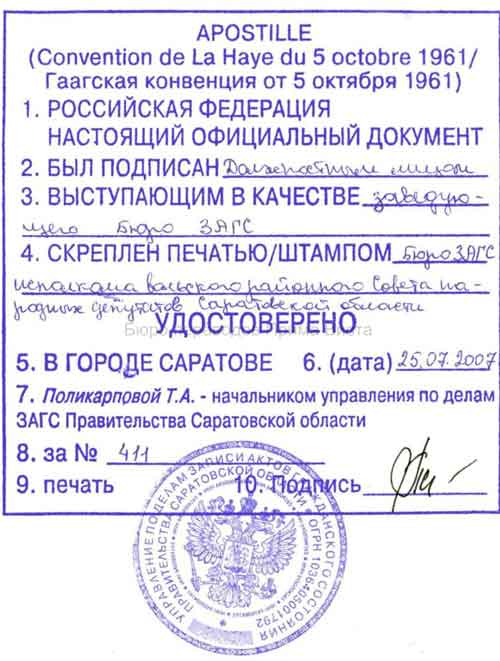 APOSTILLE
(Convention de La Haye du 5 octobre 1961/
Гаагская конвенция от 5 октября 1961)
1. РОССИЙСКАЯ ФЕДЕРАЦИЯ
НАСТОЯЩИЙ ОФИЦИАЛЬНЫЙ ДОКУМЕНТ
2. БЫЛ ПОДПИСАН Должностным лицом
3. ВЫСТУПАЮЩИМ В КАЧЕСТВЕ заведую-
щего Бюро ЗАГС
4. СКРЕПЛЕН ПЕЧАТЬЮ/ШТАМПОМ Бюро ЗАГС
исполкома Вольского районного Совета на-
родных депутатов Саратовской области
УДОСТОВЕРЕНО
5. В ГОРОДЕ САРАТОВЕ 6. (дата) 25.07.2007
7. Поликарповой Т.А. - начальником управления по делам
ЗАГС Правительства Саратовской области
8. за № 411
9. печать 10. Подпись
УПРАВЛЕНИЕ ПО ДЕЛАМ ЗАПИСИ АКТОВ ГРАЖДАНСКОГО СОСТОЯНИЯ
ПРАВИТЕЛЬСТВА САРАТОВСКОЙ ОБЛАСТИ ОГРН 1036405001792